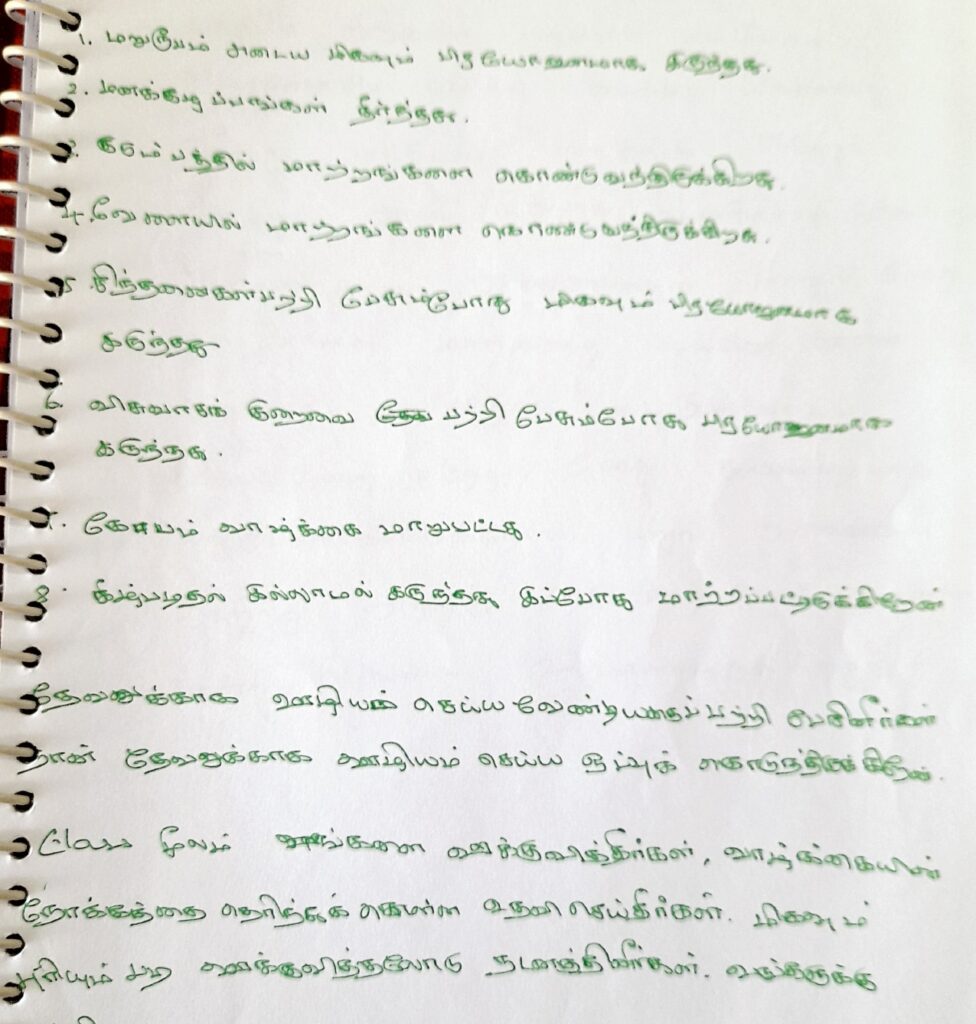 1. மறுரூபம் அடைய மிகவும் பிரயோஜனமாக இருந்தது.
2. மனக்குழப்பங்கள் தீர்ந்தது.
3. குடும்பத்தில் மாற்றங்களை கொண்டுவந்திருக்கிறது.
4. வேளையில் மாற்றங்களை கொண்டுவந்திருக்கிறது.
5 சிந்தனைகள்பற்றி பேசும்போது மிகவும் பிரயோஜனமாக
இருந்தது
6. விசுவாசக் குறைவை பற்றி பேசும்போது பிரயோஜனமாக
இருந்தது.
7. கோபம் வாழ்க்கை மாறுபட்டது.
8. கீழ்படிதல் இல்லாமல் இருந்தது, இப்போது மாற்றப்பட்டிருக்கிறேன்
தேவனுக்காக ஊழியம் செய்ய வேண்டியதைப்பற்றி பேசினீர்கள்
நான் தேவனுக்காக ஊழியம் செய்ய ஒப்புக் கொடுத்திருக்கிறேன்.
Class மூலம் எங்களை ஊக்குவித்தீர்கள், வாழ்க்கையின்
நோக்கத்தை தெரிந்துக் கொள்ள உதவி செய்தீர்கள். மிகவும்
ஊக்குவித்தலோடு நடத்தினீர்கள். உங்களுக்கு